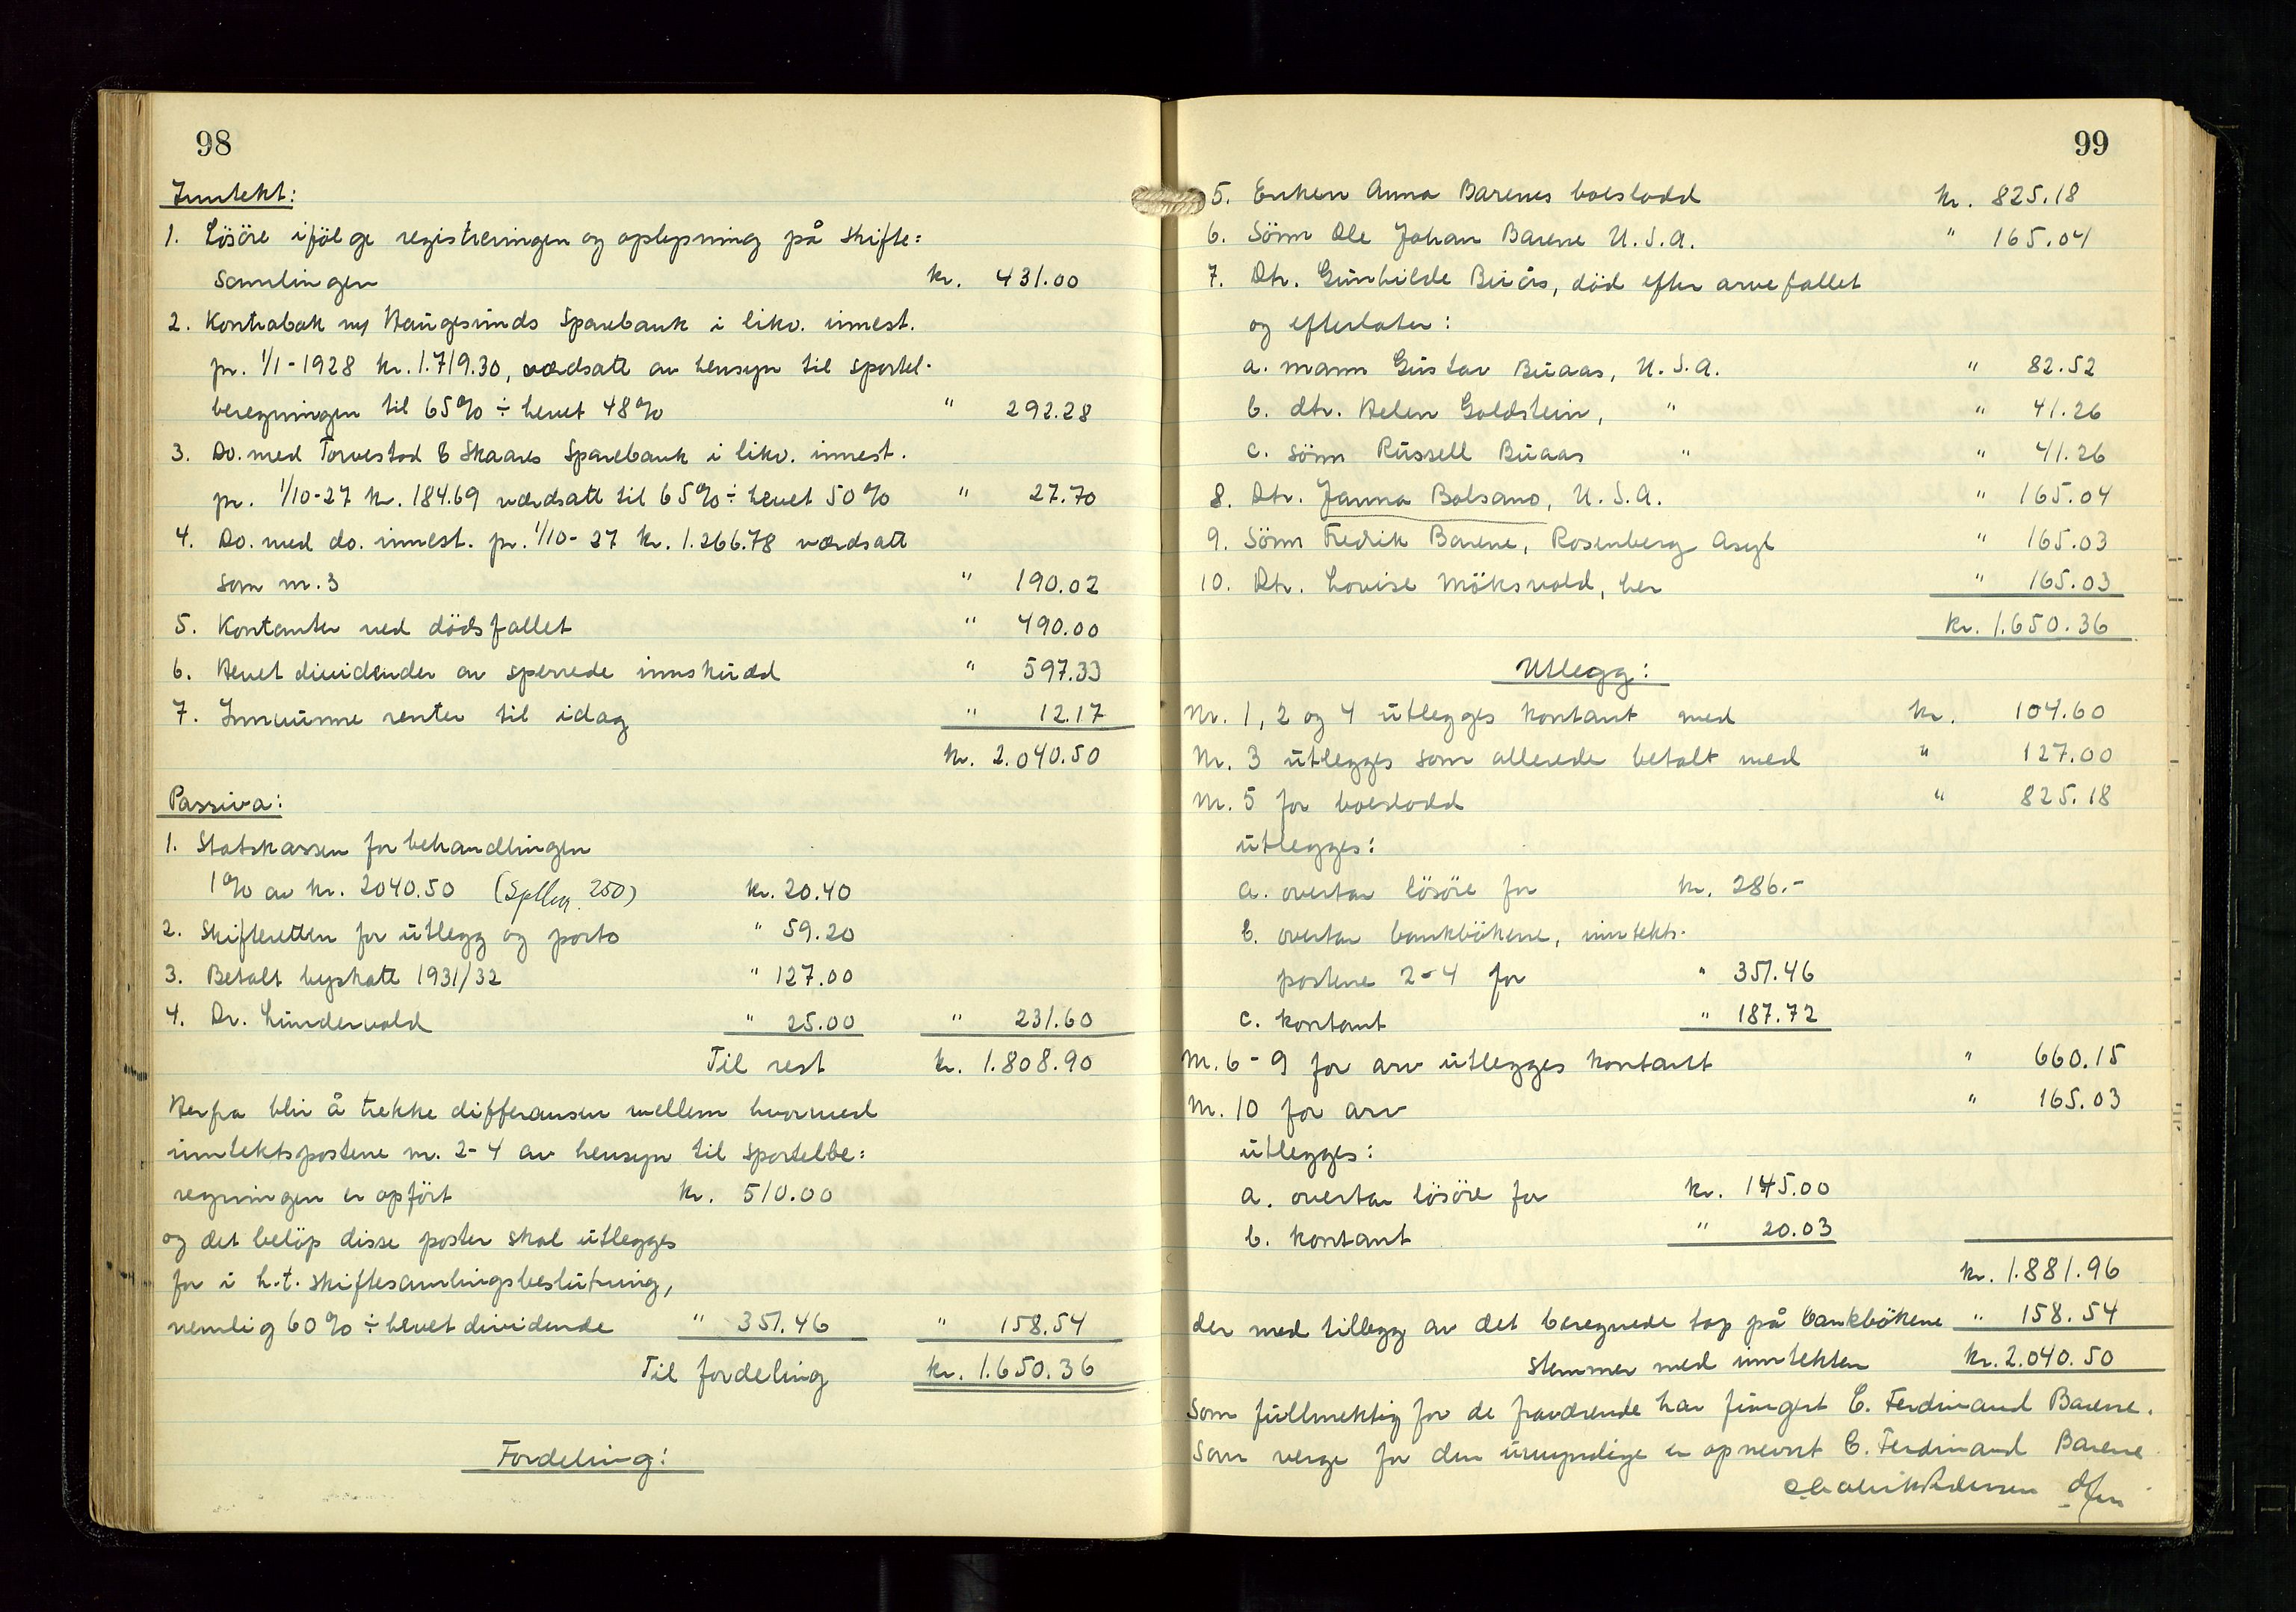 98
Inntekt:
1. Lösöre ifölge registreringen og oplysning på skifte=
samlingen kr. 431.00
2. Kontrabok m/ Haugesunds Sparebank i likv. innest.
pr. 1/1-1928 kr. 1.719.30, værdsatt av hensyn til sportel-
beregningen til 65% ÷ hevet 48% " 292.28
3. Do. med Torvestad & Skaares Sparebank i likv. innest.
pr. 1/10-27 kr. 184.69 værdsatt til 65% ÷ hevet 50% " 27.70
4. Do. med do. innest. pr. 1/10-27 kr. 1.266.78 værdsatt
som nr. 3 " 190.02
5. Kontanter ved dödsfallet " 490.00
6. Hevet dividender av sperrede innskudd " 597.33
7. Innvunne renter til idag " 12.17
kr. 2.040.50
Passiva:
1. Statskassen for behandlingen
1% av kr. 2040.50 ( 250) kr. 20.40
2. Skifteretten for utlegg og porto " 59.20
3. Betalt byskatt 1931/32 " 127.00
4. Dr. Lindervold " 25.00 " 231.60
Til rest kr. 1.808.90
Herfra blir å trekke differansen mellem hvormed
inntektspostene nr. 2-4 av hensyn til sportelbe=
regningen er opfört kr. 510.00
og det belöp disse poster skal utlegges
for i h.t. skiftesamlingsbeslutning,
nemlig 60% ÷ hevet dividende " 351.46 " 158.54
Til fordeling kr. 1.650.36
Fordeling:
99
5. Enken Anna Barenes boeslodd kr. 825.18
6. Sönn Ole Johan Barene U.S.A. " 165.04
7. Dtr. Gunhilde Buås, död efter arvefallet
og efterlater:
a. mann Gustav Buaas, U.S.A. " 82.52
b. dtr. Helen Goldstein, " " 41.26
c. sönn Russell Buaas " " 41.26
8. Dtr. Janna Bolsano, U.S.A. " 165.04
9. Sönn Fredrik Barene, Rosenberg Asyl " 165.03
10. Dtr. Lovise Möksvold, her " 165.03
kr. 1.650.36
Utlegg:
Nr. 1, 2 og 4 utlegges kontant med kr. 104.60
Nr. 3 utlegges som allerede betalt med " 127.00
Nr. 5 for boeslodd " 825.18
utlegges:
a. overtar lösöre for kr. 286.-
b. overtar bankbökene, inntekts-
postene 2-4 for " 351.46
c. kontant " 187.72
Nr. 6-9 for arv utlegges kontant " 660.15
Nr. 10 for arv " 165.03
utlegges:
a. overtar lösöre for kr. 145.00
b. kontant " 20.03
kr. 1.881.96
der med tillegg av det beregnede tap på bankbökene " 158.54
stemmer med inntekten kr. 2.040.50
Som fullmektig for de fraværende har fungert C. Ferdinand Barene.
Som verge for den umyndige er opnevnt C. Ferdinand Barene